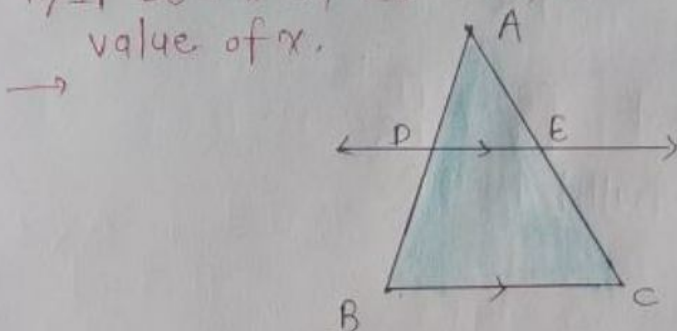 value of x.
→
A
D
E
B
C